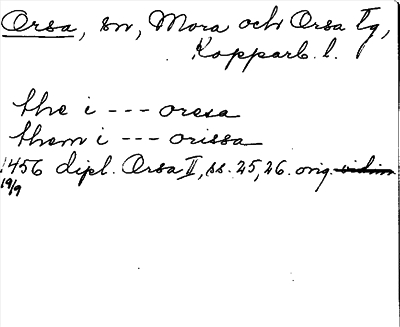 Orsa, sn, Mora och Orsa tg,
Kopparb. l.
the i --- oresa
them i --- orissa
1456 dipl. Orsa II, ss. 25, 26. orig.
19/9